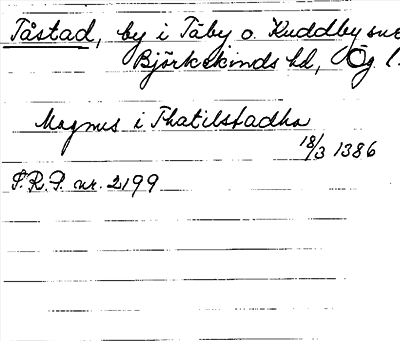 Tåstad, by i Täby o. Kuddby
Björkekinds hd, Ög l.
Magnus i Thatilstadha
18/3 1386
S.R.P. nr. 2199